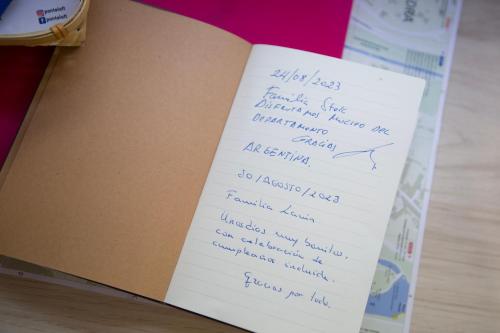 pontaloft
pontaloft
24/08/2023
Familia
DISFRUTAMOS MUCHO DEL
DEPARTAMENTO
GRACIAS
ARGENTINA.
30/AGOSTO/2023
Familia
Unos días muy bonitos,
con celebración de
cumpleaños incluida.
Gracias por todo.